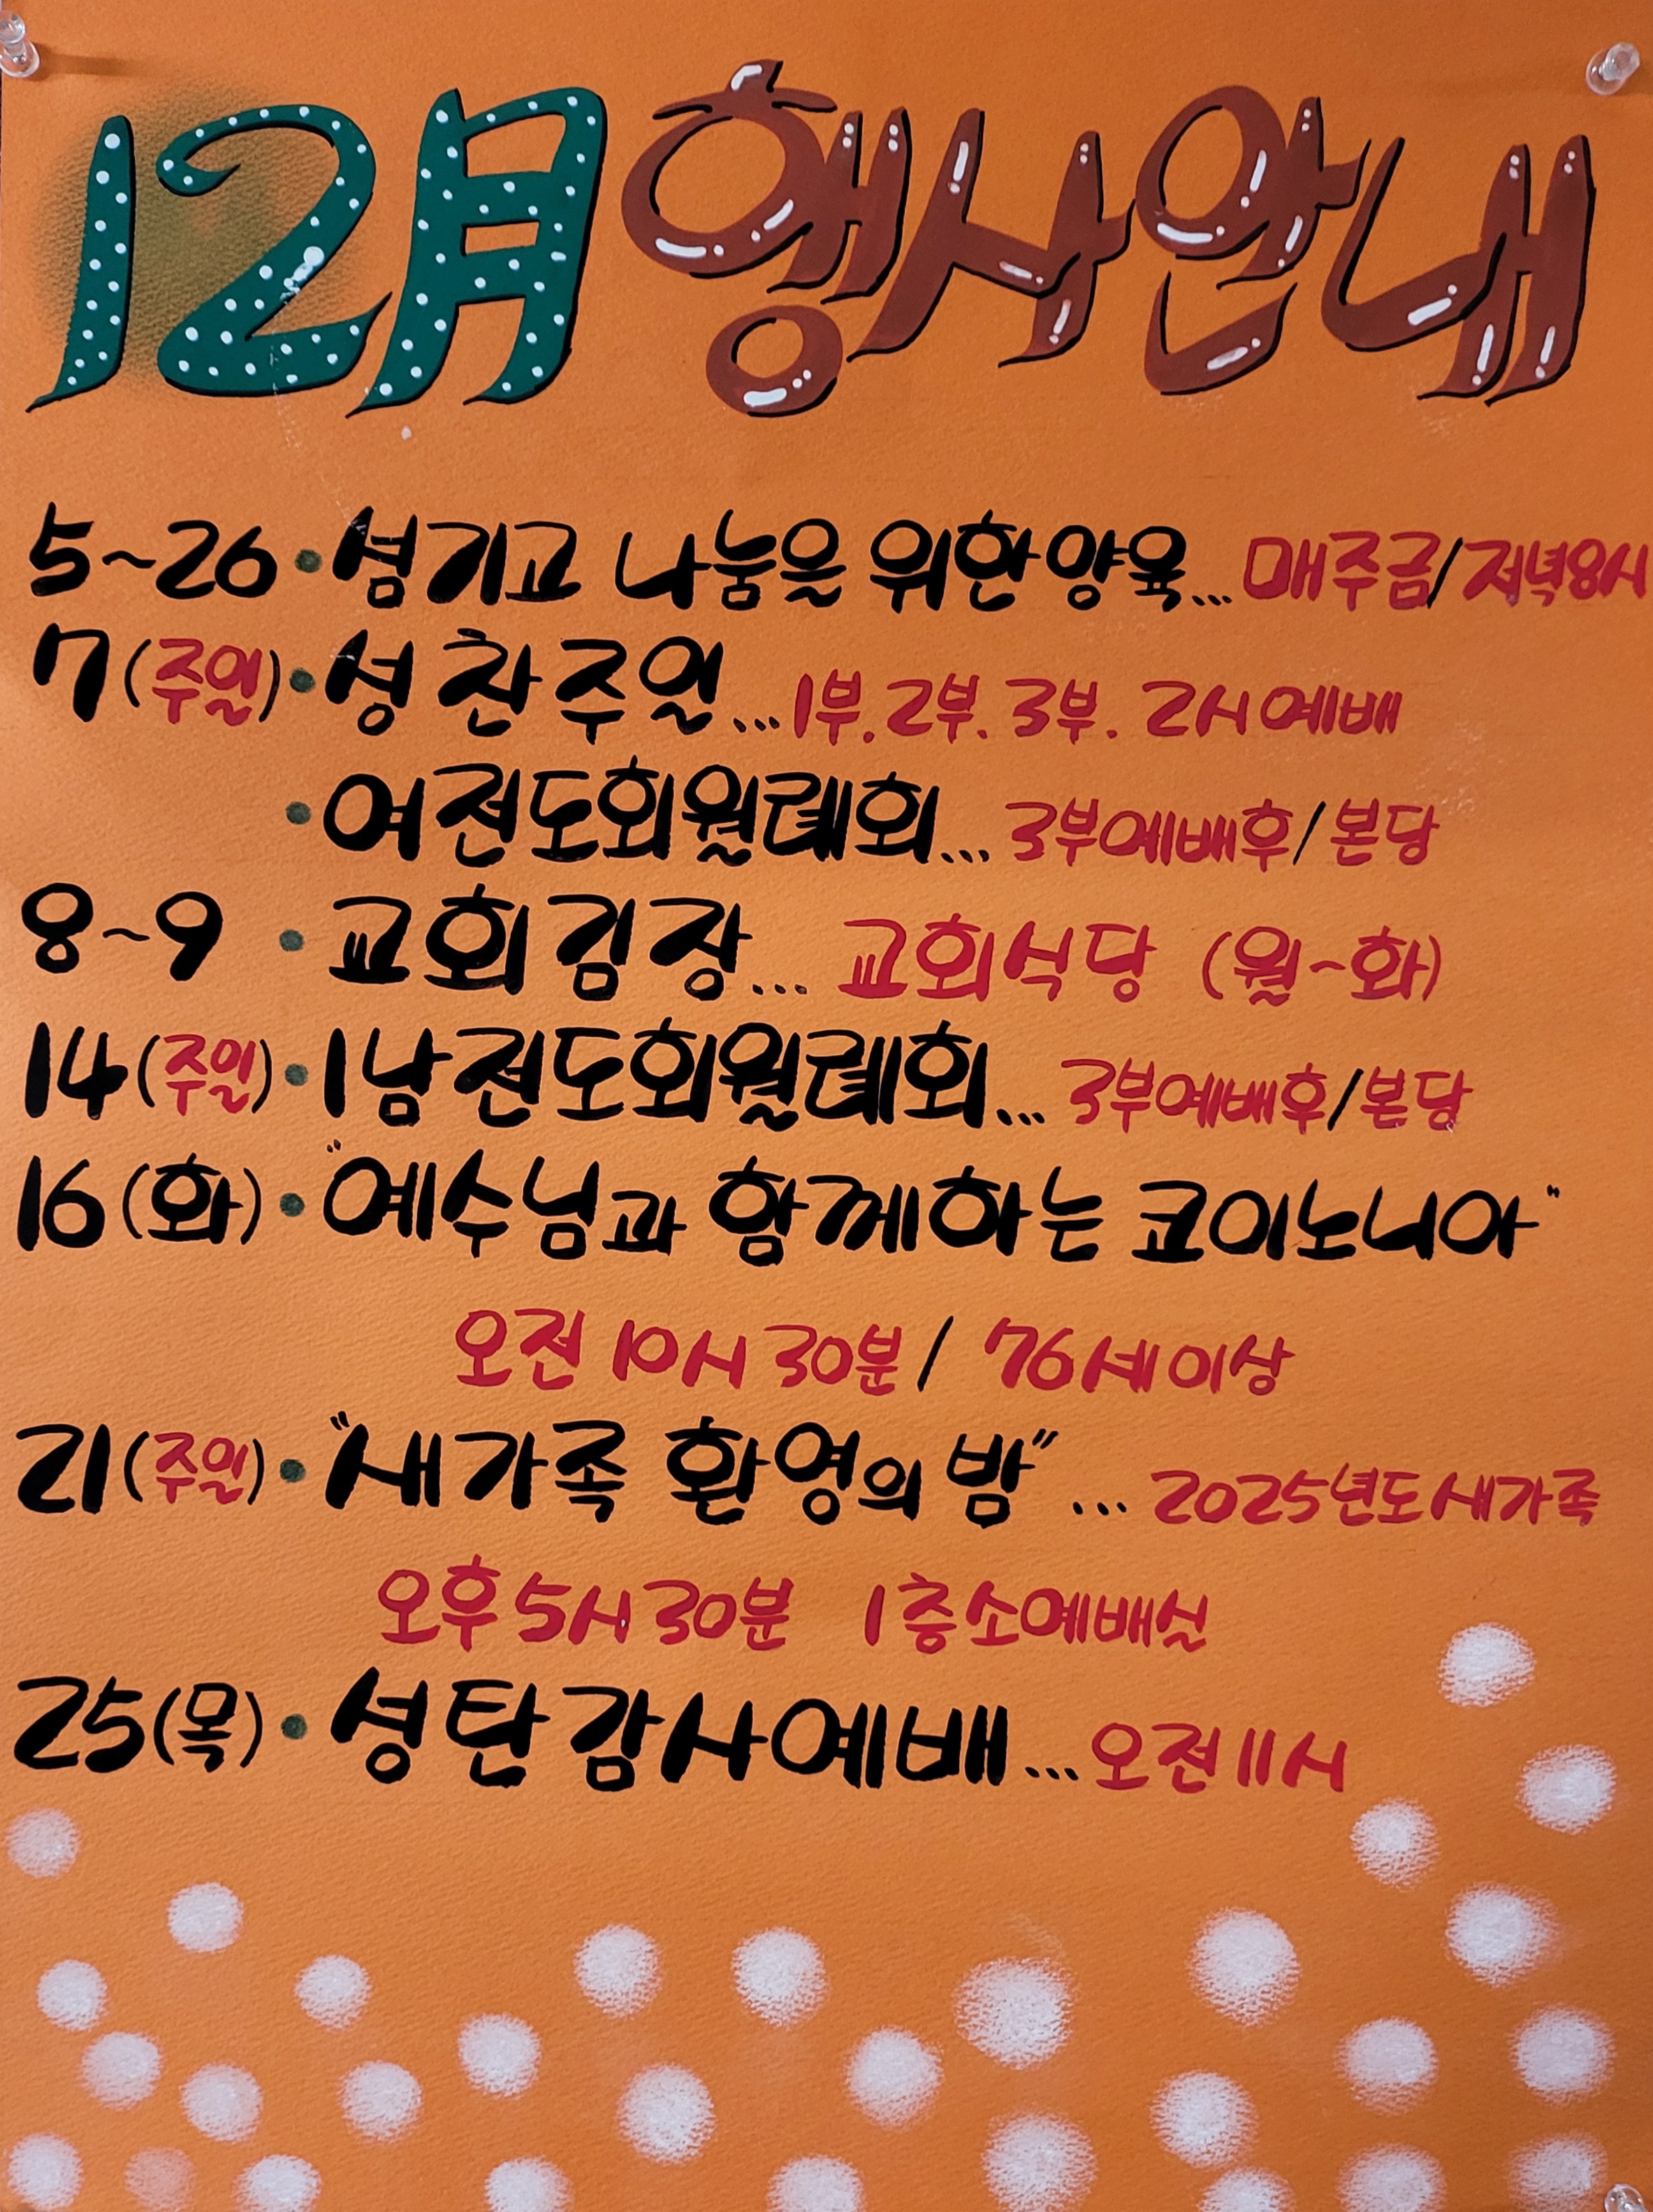 12月 행사안내
5~26 • 섬기고 나눔을 위한 양육... 매주금/저녁8시
7(주일) • 성찬주일... 1부. 2부. 3부. 2시예배
• 여전도회월례회... 3부예배후/본당
8~9 • 교회김장... 교회식당 (월~화)
14(주일) • 1남전도회월례회... 3부예배후/본당
16(화) • "예수님과 함께하는 코이노니아"
오전 10시 30분/ 76세이상
21(주일) • "새가족 환영의 밤"... 2025년도새가족
오후5시30분 1층소예배실
25(목) • 성탄감사예배... 오전11시